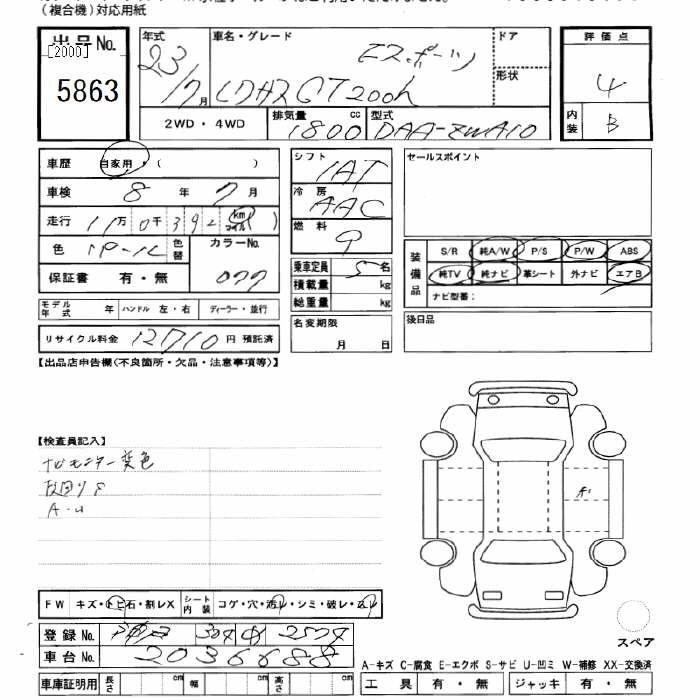 (複合機)対応用紙
出品No.
[2000]
5863
年式
23/7月
車名・グレード
ドア
形状
CT200h
2WD・4WD
排気量 1800 cc
型式 DAA-ZWA10
評価点
4
内装
B
車歴 自家用・( )
車検 8年7月
走行 11万0千392 km マイル
色
色替
カラーNo.
077
保証書 有・無
モデル年式 年 ハンドル 左・右 ディーラー・並行
リサイクル料金 12710円 預託済
シフト
IAT
冷房
AAC
燃料
乗車定員 5名
積載量 kg
総重量 kg
名変期限
月 日
セールスポイント
装備品
S/R 純A/W P/S P/W ABS
純TV 純ナビ 革シート 外ナビ エアB
ナビ型番:
後日品
【出品店申告欄(不良箇所・欠品・注意事項等)】
【検査員記入】
ナビモニター変色
A・U
FW キズ・トビ石・割レX
シート内装 コゲ・穴・汚レ・シミ・破レ・スレ
登録No.
神戸 304
車台No. 2036688
車庫証明用 長さ cm 幅 cm 高さ cm
スペア
A-キズ C-腐食 E-エクボ S-サビ U-凹ミ W-補修 XX-交換済
工具 有・無 ジャッキ 有・無